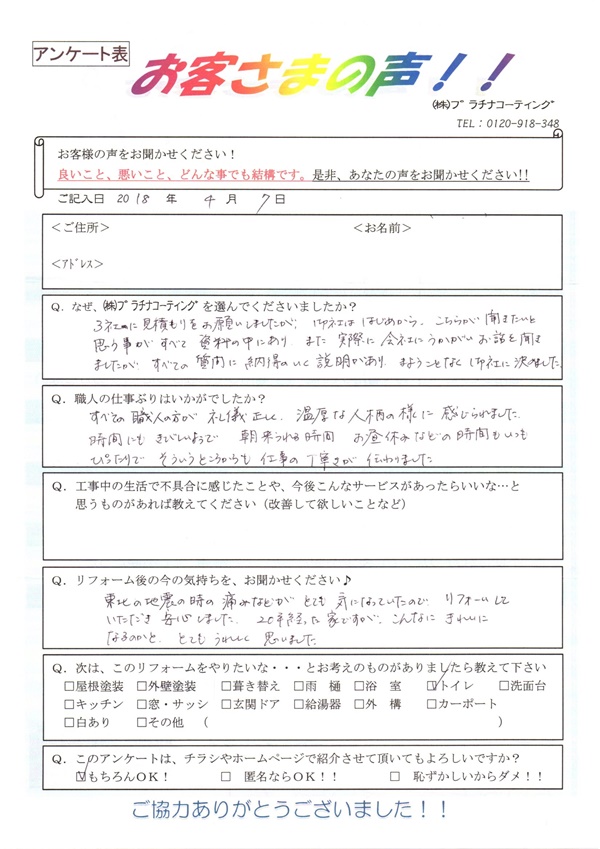 アンケート表
お客さまの声！！
㈱プラチナコーティング
TEL：0120-918-348
お客様の声をお聞かせください！
良いこと、悪いこと、どんな事でも結構です。是非、あなたの声をお聞かせください!!
ご記入日 2018 年 4 月 7 日
＜ご住所＞ ＜お名前＞
＜アドレス＞
Q．なぜ、㈱プラチナコーティングを選んでくださいましたか？
3社に見積もりをお願いしましたが、御社ははじめから、こちらが聞きたいと
思う事がすべて資料の中にあり また 実際に会社にうかがいお話を聞き
ましたが すべての質問に納得のいく説明があり、まようことなく御社に決めました。
Q．職人の仕事ぶりはいかがでしたか？
すべての職人の方が礼儀正しく、温厚な人柄の様に感じられました。
時間にもきびしいようで 朝来られる時間 お昼休みなどの時間もいつも
ぴったりで そういうところからも仕事の丁寧さが伝わりました
Q．工事中の生活で不具合に感じたことや、今後こんなサービスがあったらいいな…と
思うものがあれば教えてください（改善して欲しいことなど）
Q．リフォーム後の今の気持ちを、お聞かせください♪
東北の地震の時の痛みなどがとても気になっていたので、リフォームして
いただき安心しました。20年経った家ですが、こんなにきれいに
なるのかと、とてもうれしく思いました。
Q．次は、このリフォームをやりたいな・・・とお考えのものがありましたら教えて下さい
□屋根塗装 □外壁塗装 □葺き替え □雨　樋 □浴　室 ☑トイレ □洗面台
□キッチン □窓・サッシ □玄関ドア □給湯器 □外　構 □カーポート
□白あり □その他 （ ）
Q．このアンケートは、チラシやホームページで紹介させて頂いてもよろしいですか？
☑もちろんOK！ □ 匿名ならOK！！ □ 恥ずかしいからダメ！！
ご協力ありがとうございました！！